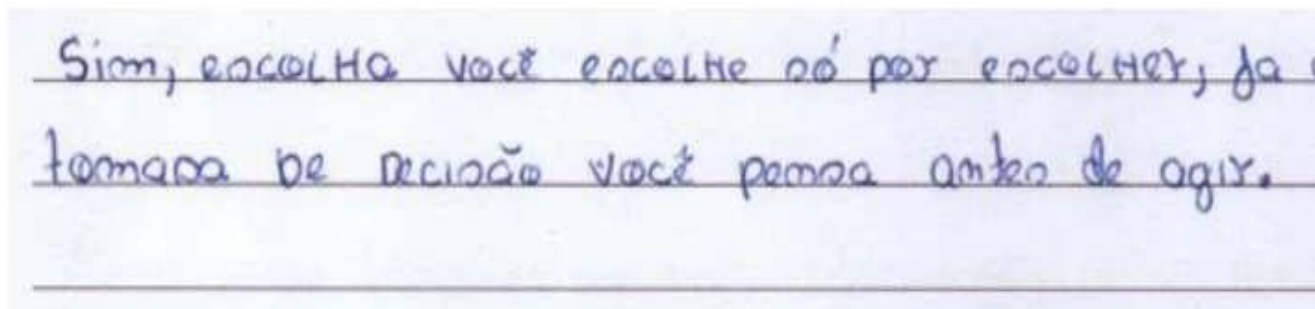 Sim, escolha você escolhe só por escolher, ja
tomada de decisão você pensa antes de agir.